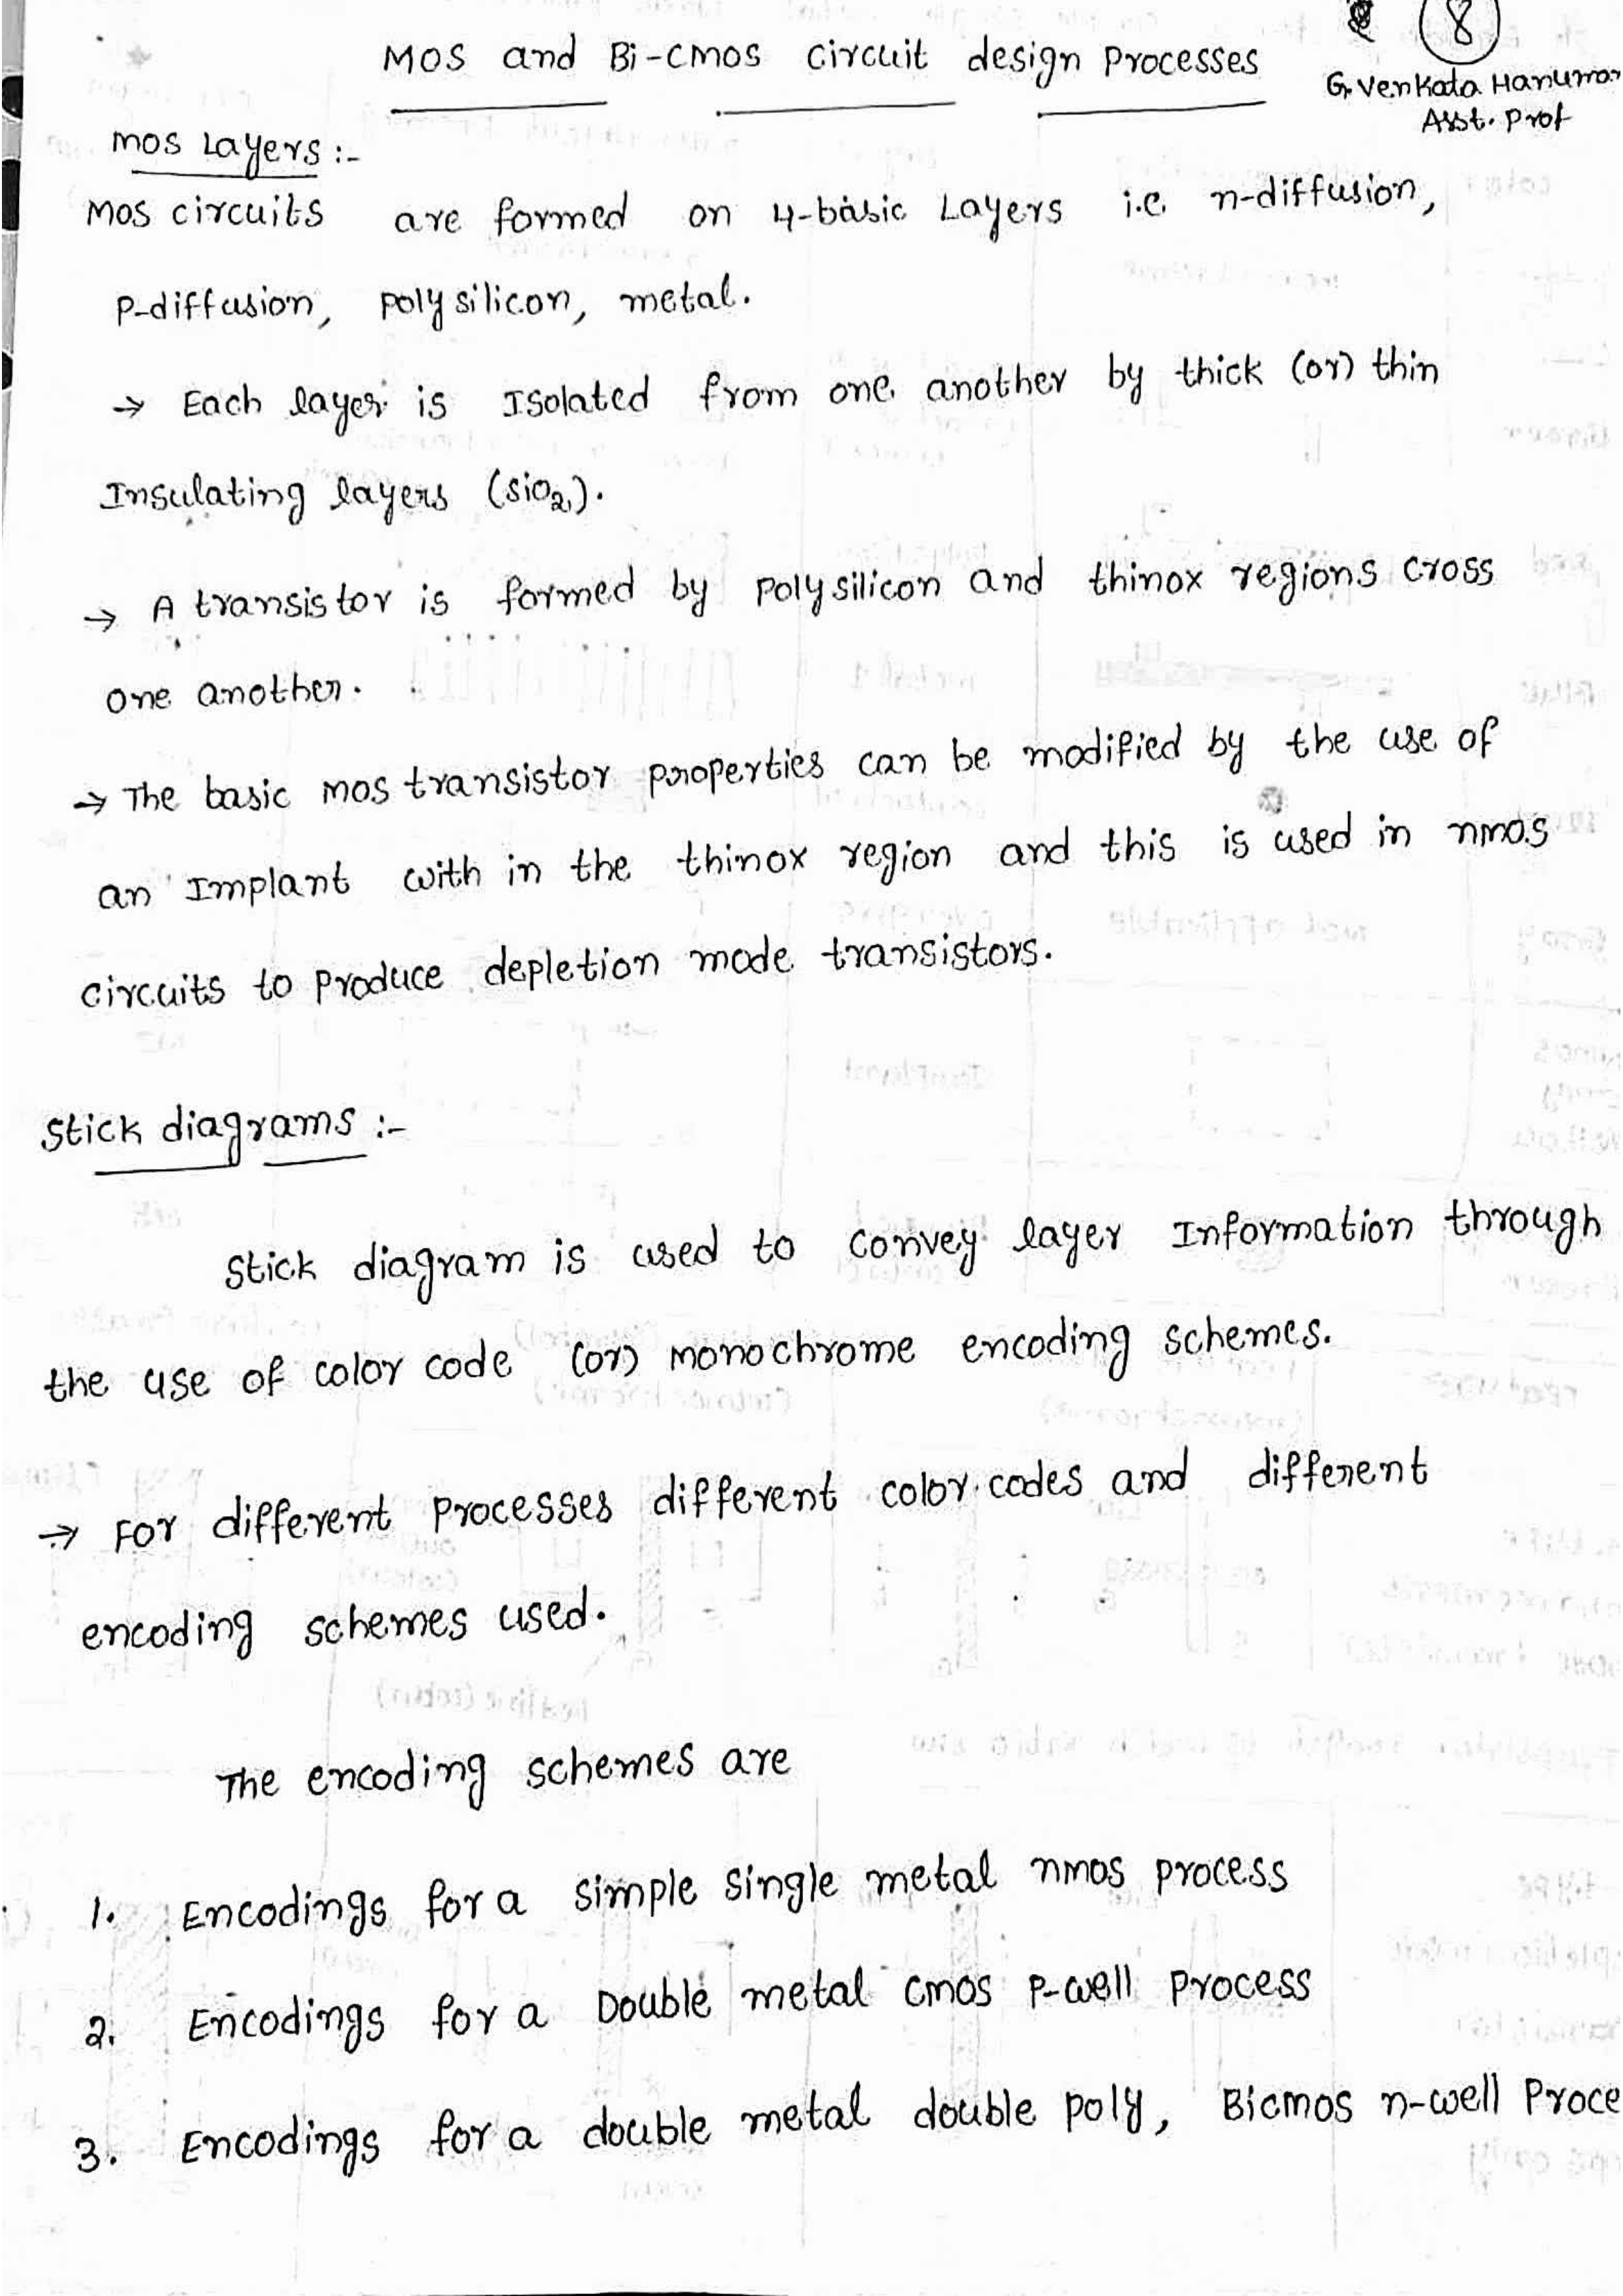 8
MOS and Bi-CMOS circuit design Processes
G. Venkata
Asst. Prof
MOS Layers :-
MOS circuits are formed on 4-basic Layers i.e. n-diffusion,
P-diffusion, polysilicon, metal.
→ Each layer is Isolated from one another by thick (or) thin
Insulating layers (SiO2).
→ A transistor is formed by polysilicon and thinox regions cross
one another.
→ The basic mos transistor properties can be modified by the use of
an Implant with in the thinox region and this is used in nmos
circuits to produce depletion mode transistors.
Stick diagrams :-
Stick diagram is used to convey layer Information through
the use of color code (or) monochrome encoding schemes.
→ For different Processes different color codes and different
encoding schemes used.
The encoding schemes are
1. Encodings for a simple single metal nmos process
2. Encodings for a Double metal cmos P-well process
3. Encodings for a double metal double poly, Bicmos n-well Proce